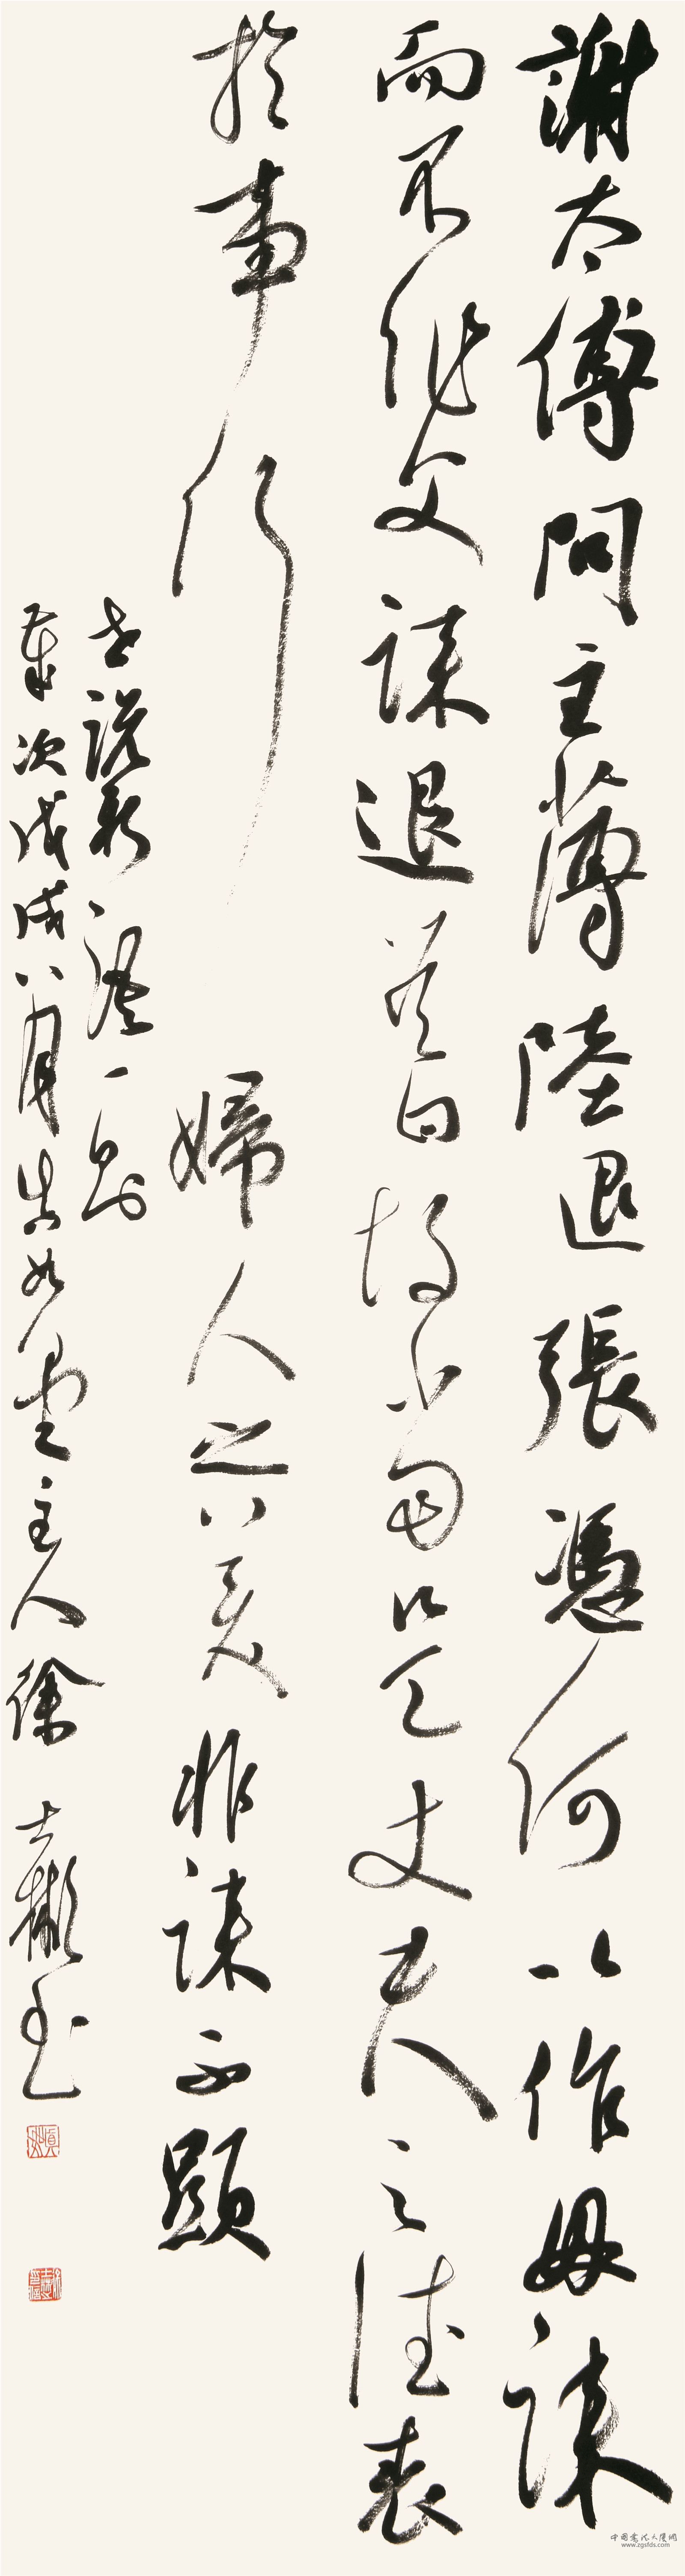 謝太傅問主薄陸退張憑何以作母誄
而不作父誄退答曰故當是丈夫之德表
於事行 婦人之美非誄不顯
世說新語一則
歲次戊戌八月真如堂主人徐 彬書
www.zgsfds.com